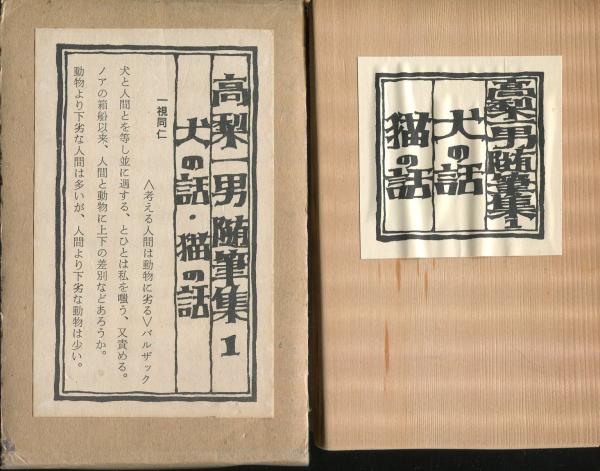 高梨一男随筆集1
犬の話・猫の話
一視同仁
〈考える人間は動物に劣る〉バルザック
犬と人間とを等し並に遇する、とひとは私を嗤う、又責める。
ノアの箱船以来、人間と動物に上下の差別などあろうか。
動物より下劣な人間は多いが、人間より下劣な動物は少い。
高梨一男随筆集1
犬の話
猫の話